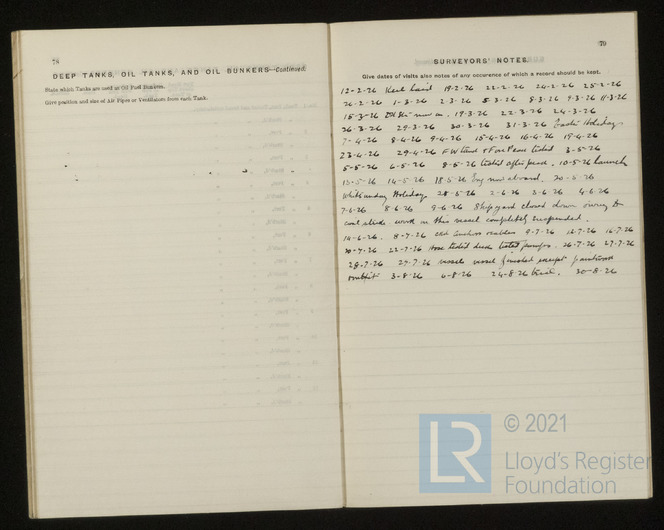 78
DEEP TANKS, OIL TANKS, AND OIL BUNKERS—Continued.
State which Tanks are used as Oil Fuel Bunkers.
Give position and size of Air Pipes or Ventilators from each Tank.
79
SURVEYORS' NOTES.
Give dates of visits also notes of any occurence of which a record should be kept.
12-2-26 Keel laid 19-2-26 22-2-26 24-2-26 25-2-26
26-2-26 1-3-26 2-3-26 5-3-26 8-3-26 9-3-26 11-3-26
15-3-26 19-3-26 22-3-26 24-3-26
26-3-26 29-3-26 30-3-26 31-3-26 Easter Holidays
7-4-26 8-4-26 9-4-26 15-4-26 16-4-26 19-4-26
23-4-26 29-4-26 F W tank & Fore Peak tested 3-5-26
5-5-26 6-5-26 8-5-26 tested after peak. 10-5-26 Launch
13-5-26 14-5-26 18-5-26 Eng now aboard. 20-5-26
Whitsunday Holidays 28-5-26 2-6-26 3-6-26 4-6-26
7-6-26 8-6-26 9-6-26 Shipyard closed down owing to
coal strike work on this vessel completely suspended.
14-6-26. 8-7-26 9-7-26 12-7-26 16-7-26
20-7-26 22-7-26 Hose tested deck 26-7-26 27-7-26
28-7-26 29-7-26 vessel finished except
outfit 3-8-26 6-8-26 24-8-26 trial. 30-8-26
LR
© 2021
Lloyd's Register
Foundation